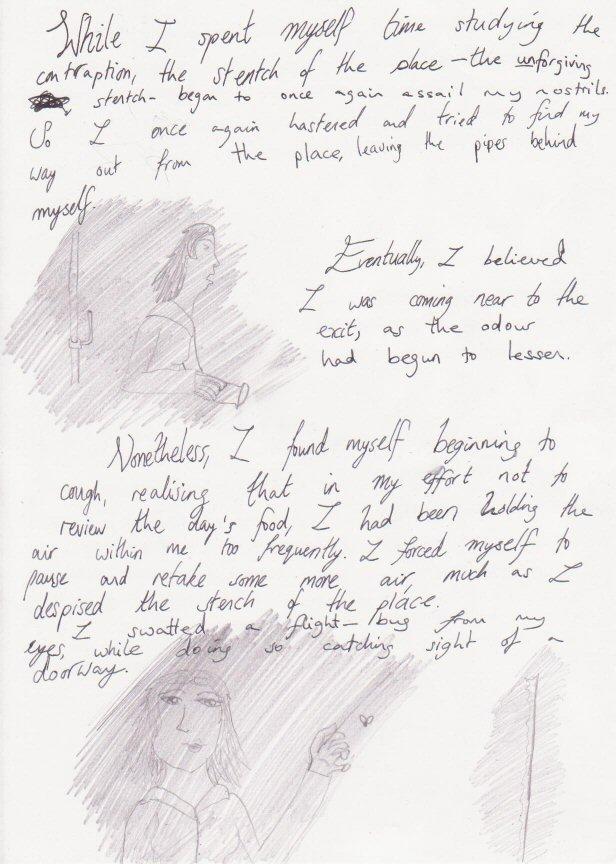 While I spent myself time studying the
contraption, the stentch of the place – the unforgiving
stentch – began to once again assail my nostrils.
So I once again hastened and tried to find my
way out from the place, leaving the pipes behind
myself.
Eventually, I believed
I was coming near to the
exit, as the odour
had begun to lessen.
Nonetheless, I found myself beginning to
cough, realising that in my effort not to
review the day's food, I had been holding the
air within me too frequently. I forced myself to
pause and retake some more air, much as I
despised the stench of the place.
I swatted a flight-bug from my
eyes, while doing so catching sight of a
doorway.